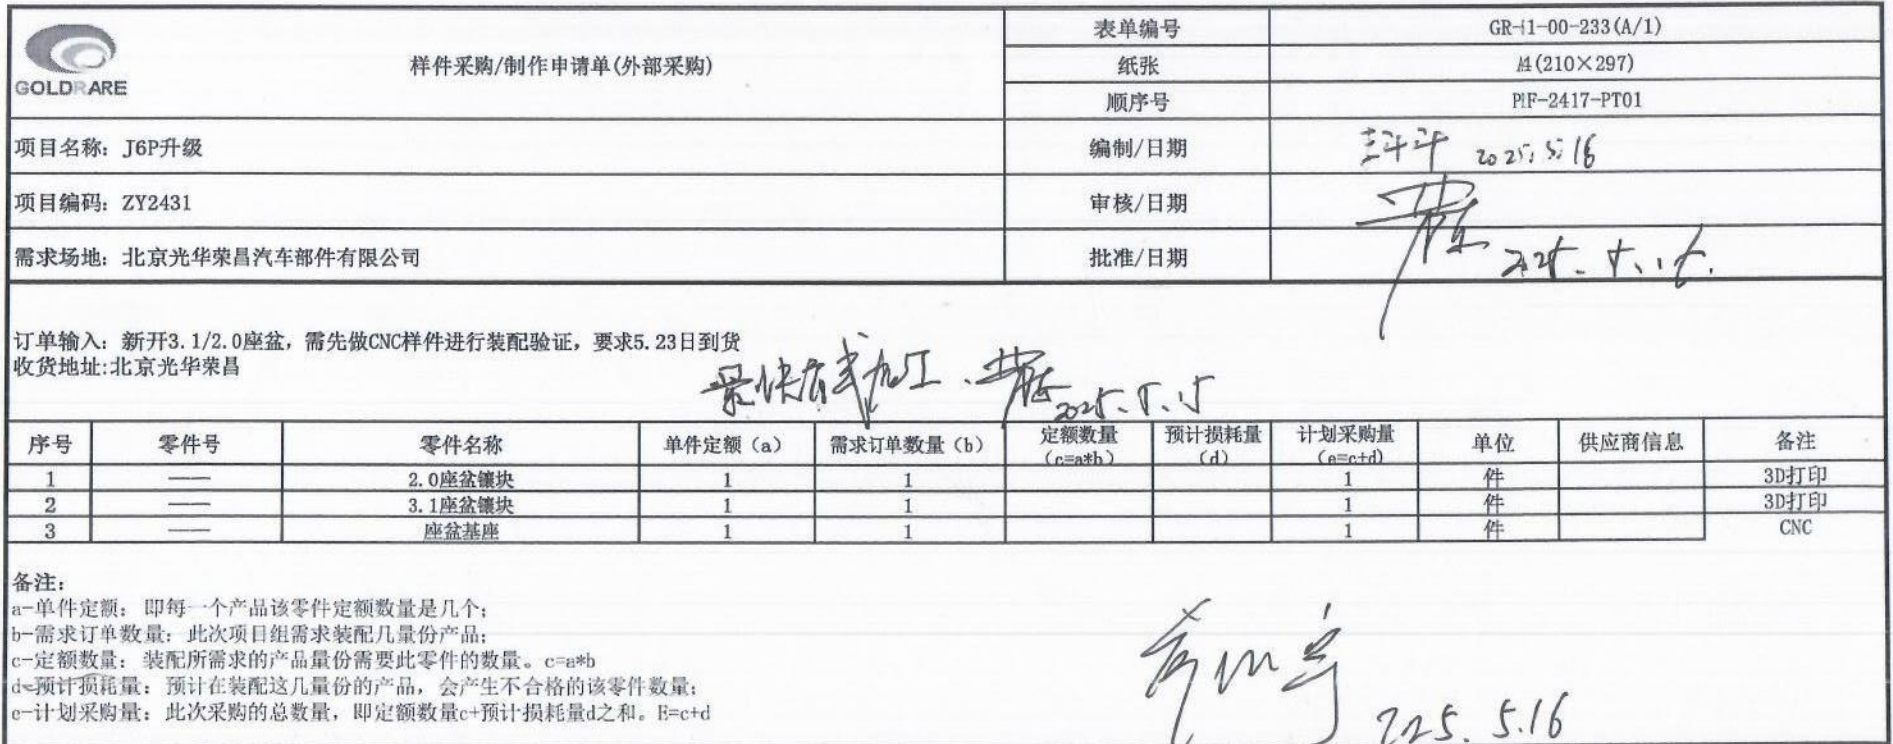 GOLDRARE
样件采购/制作申请单(外部采购)
表单编号 GR-i1-00-233(A/1)
纸张 A4(210×297)
顺序号 PIF-2417-PT01
项目名称: J6P升级 编制/日期 2025.5.16
项目编码: ZY2431 审核/日期
需求场地: 北京光华荣昌汽车部件有限公司 批准/日期 2025.5.16.
订单输入: 新开3.1/2.0座盆, 需先做CNC样件进行装配验证, 要求5.23日到货
收货地址:北京光华荣昌
最快 加工. 2025.5.15
序号 零件号 零件名称 单件定额 (a) 需求订单数量 (b) 定额数量 (c=a*b) 预计损耗量 (d) 计划采购量 (e=c+d) 单位 供应商信息 备注
1 —— 2.0座盆镶块 1 1 1 件 3D打印
2 —— 3.1座盆镶块 1 1 1 件 3D打印
3 —— 座盆基座 1 1 1 件 CNC
备注:
a-单件定额: 即每一个产品该零件定额数量是几个;
b-需求订单数量: 此次项目组需求装配几量份产品;
c-定额数量: 装配所需求的产品量份需要此零件的数量。c=a*b
d-预计损耗量: 预计在装配这几量份的产品, 会产生不合格的该零件数量;
e-计划采购量: 此次采购的总数量, 即定额数量c+预计损耗量d之和。E=c+d
2025.5.16